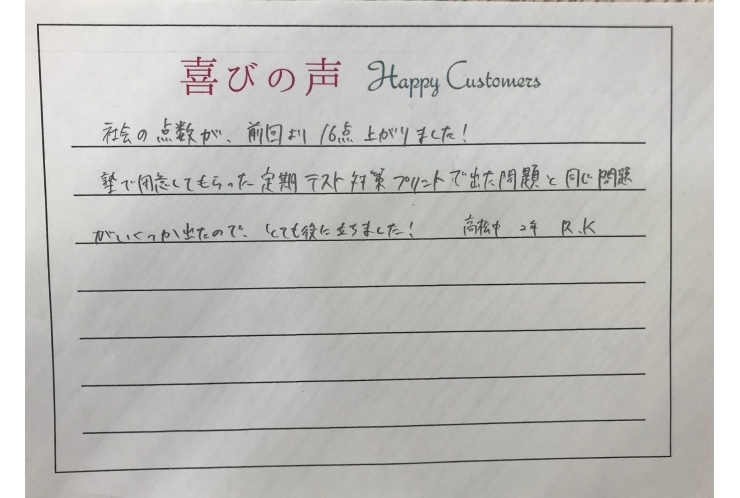 喜びの声 Happy Customers
社会の点数が、前回より16点上がりました!
塾で用意してもらった定期テスト対策プリントで出た問題と同じ問題
がいくつか出たので、とても役に立ちました! 高松中 2年 R.K